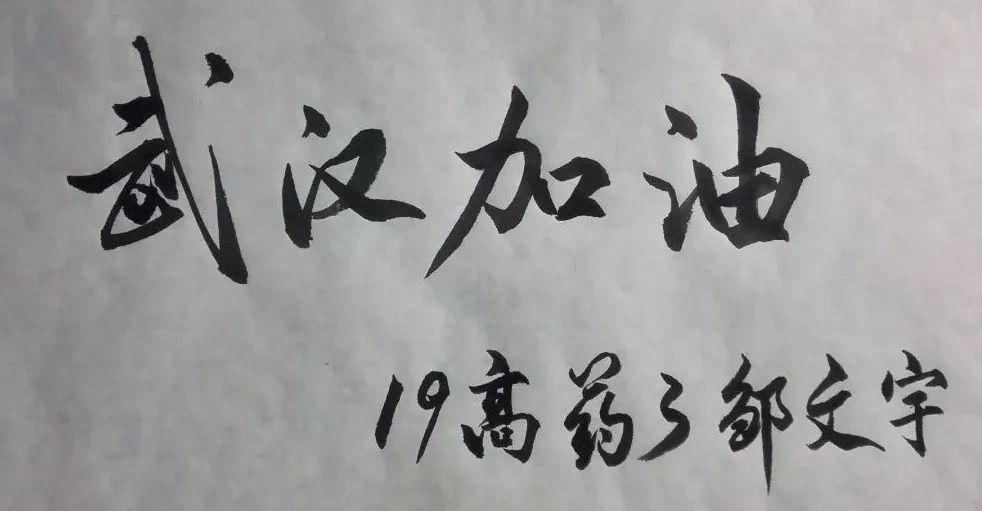 武汉加油
19高药3邹文宇